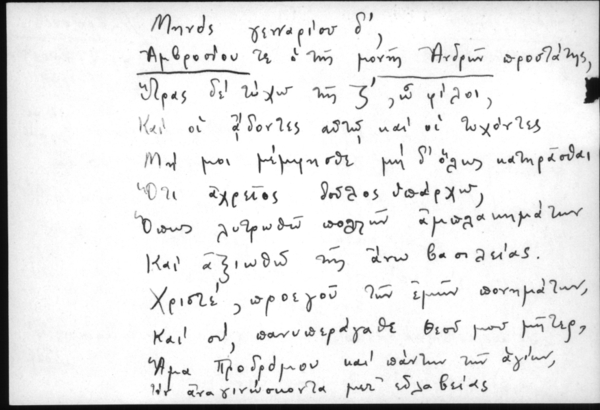 Μηνός γενναρίου δ΄,
Ἀμβροσίου τε ὁ τῆς μονῆς Ἀνδρῶν προστάτης,
Ὥρας δέ τύχω τῆς ζ΄, ὦ φίλοι,
Καί οἱ ᾄδοντες αὐτῷ καί οἱ τυχόντες
Μή μοι μέμψησθε μή δ' ὅλως κατηρᾶσθαι
Ὅτι ἀχρεῖος δοῦλος ὑπάρχω,
Ὅπως λυτρωθῶ πολλῶν ἀμπλακημάτων
Καί ἀξιωθῶ τῆς ἄνω βασιλείας.
Χριστέ, προεγοῦ τῶν ἐμῶν πονημάτων,
Καί σύ, πανυπεράγαθε Θεοῦ μου μῆτερ,
Ἅμα Προδρόμου καί πάντων τῶν ἁγίων,
ἀναγινώσκοντα μετ' εὐλαβείας